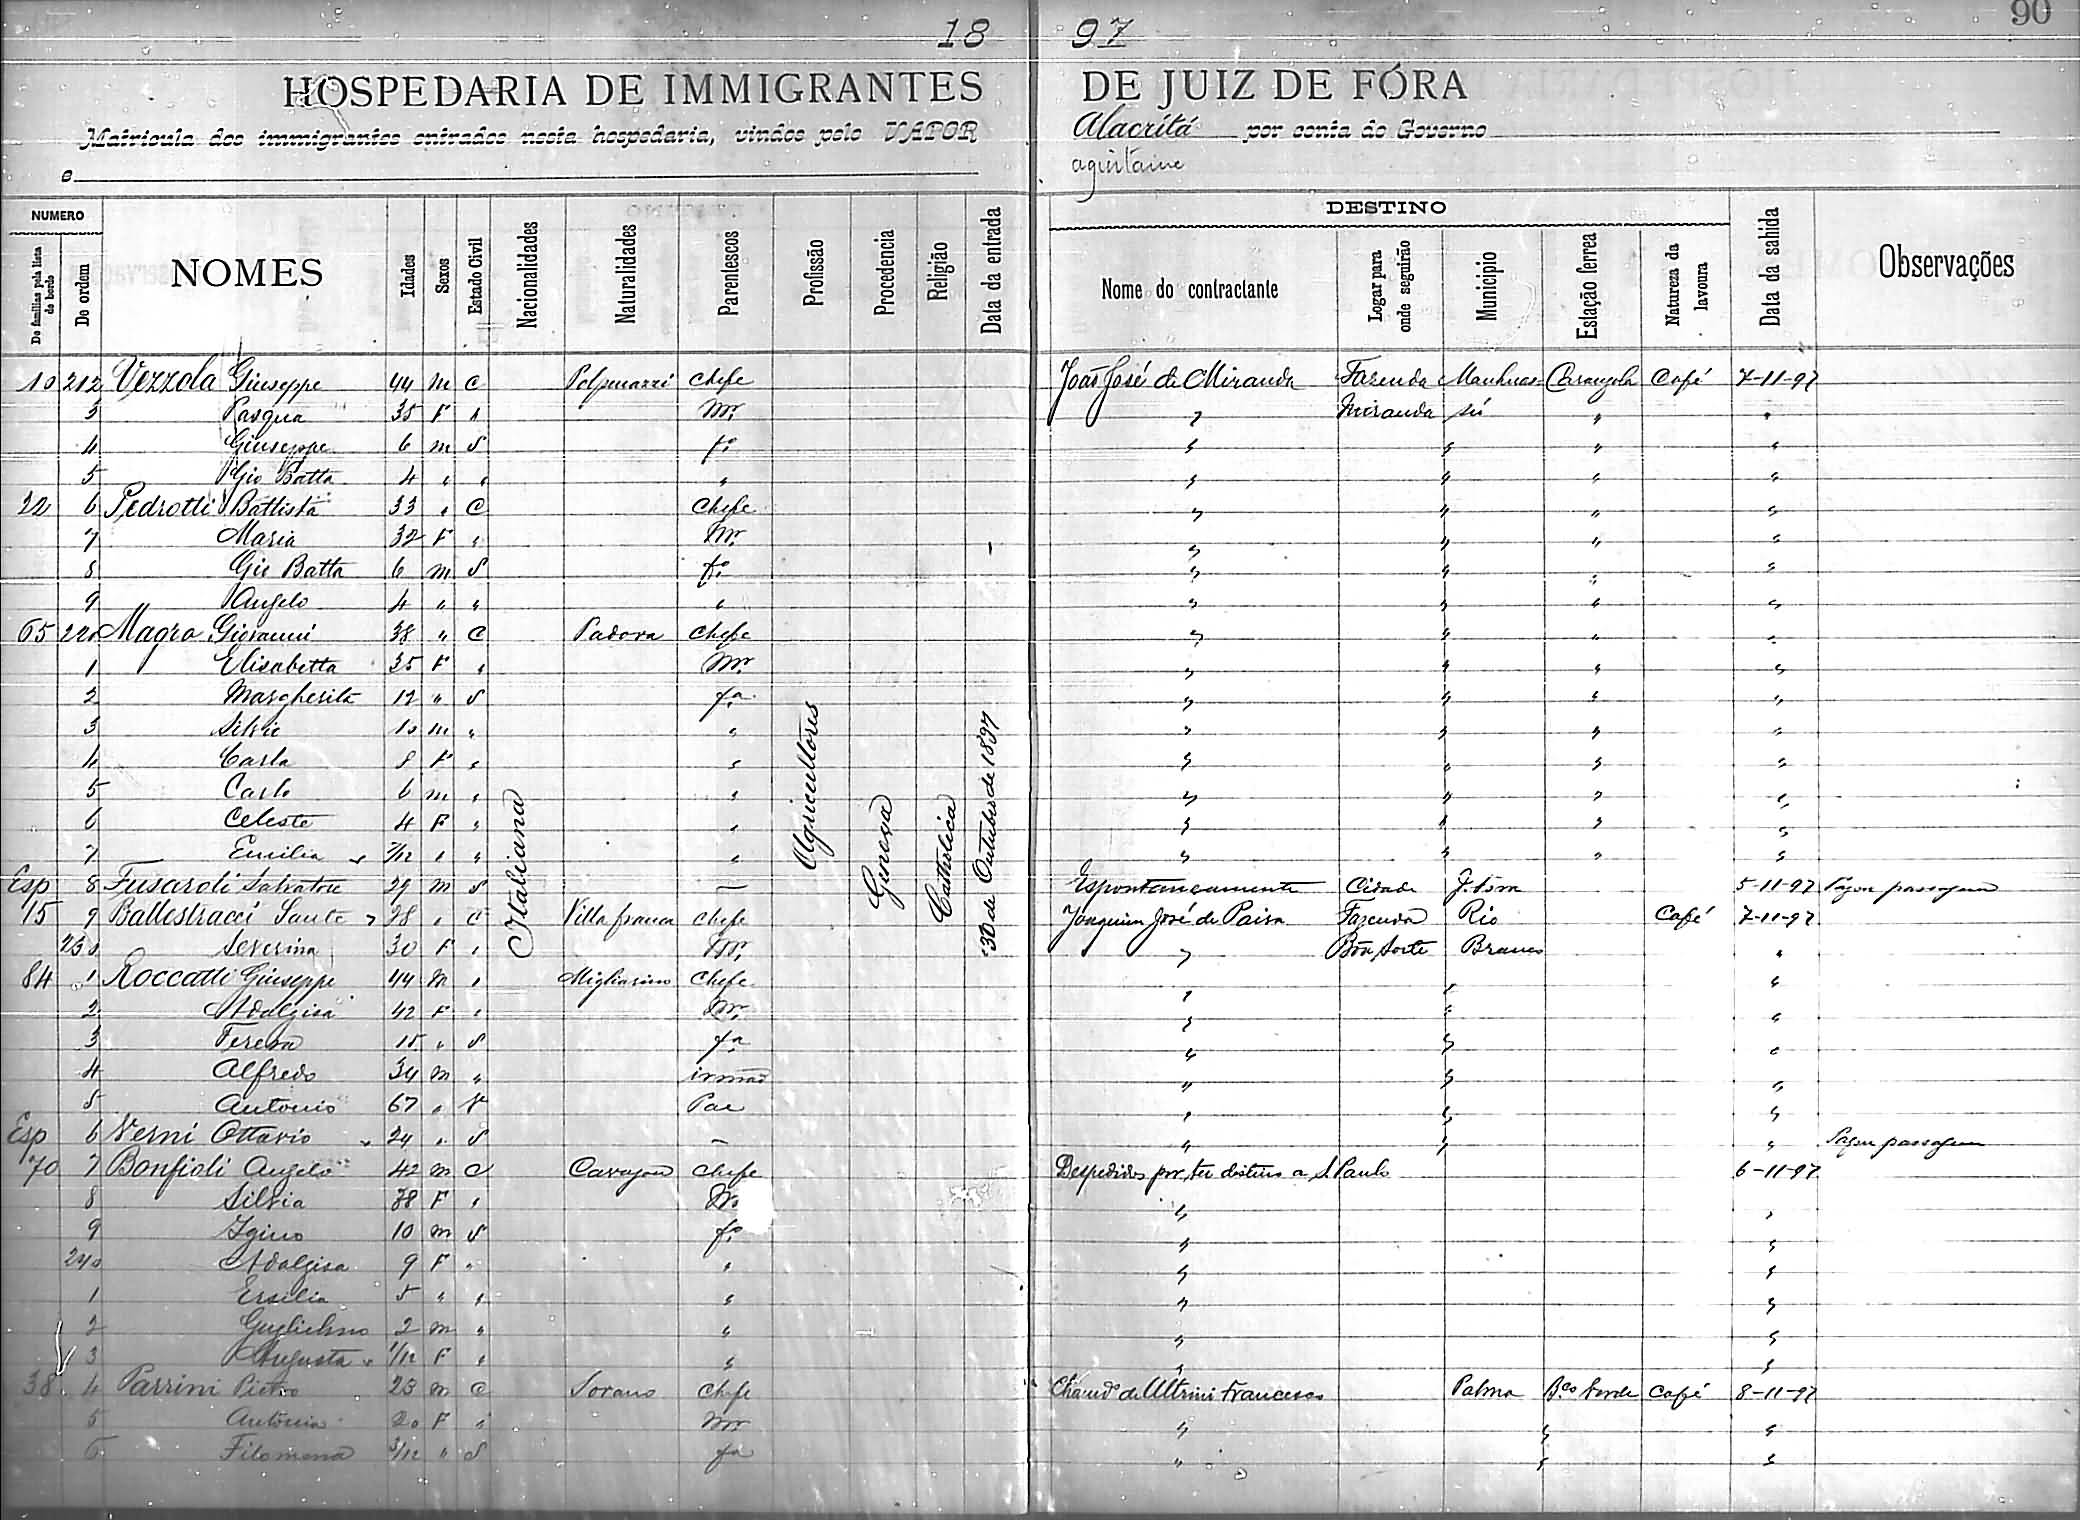 90
18 97
HOSPEDARIA DE IMMIGRANTES DE JUIZ DE FÓRA
Matricula dos immigrantes entrados nesta hospedaria, vindos pelo VAPOR Alacritá por conta do Governo
e aquitaine
NUMERO DESTINO
De familias pela lista de bordo De ordem NOMES Idades Sexos Estado Civil Nacionalidades Naturalidades Parentescos Profissão Procedencia Religião Data da entrada Nome do contractante Logar para onde seguirão Municipio Estação ferrea Natureza da lavoura Data da sahida Observações
10 212 Vezzola Giuseppe 44 m C Chefe João José de Miranda Fazenda Manhuas Carangola Café 7-11-97
3 Pasqua 35 F " Mr " Miranda sú " "
4 Giuseppe 6 m S fo " " " "
5 Gio Batta 4 " " " " " " "
22 6 Pedrotti Battista 33 " C Chefe " " " "
7 Maria 32 F " Mr " " " "
8 Gio Batta 6 m S fo " " " "
9 Angelo 4 " " " " " " "
65 220 Magro Giovanni 38 " C Padova Chefe " " " "
1 Elisabetta 35 F " Mr " " " "
2 Margherita 12 " S fa " " " "
3 10 m " " " " " "
4 Carla 8 F " " " " " "
5 Carlo 6 m " " " " " "
6 Celeste 4 F " " " " " "
7 Emilia 7/12 " " " " " " "
Italiana Agricultores Genova Catholica 30 de Outubro de 1897
Esp 8 Fusaroli Salvatore 29 m S — Espontaneamente Cidade J. Fora 5-11-97 Pagou passagem
15 9 Ballestracci Sante 38 " C Villafranca Chefe Joaquim José de Paiva Fazenda Rio Café 7-11-97
230 Severina 30 F " Mr " Bôa Sorte Branco "
84 1 Roccatti Giuseppe 44 M " Migliarino Chefe " " "
2 Adalgisa 42 F " Mr " " "
3 Teresa 15 " S fa " " "
4 Alfredo 34 m " irmão " " "
5 Antonio 67 " V Pae " " "
Esp 6 Verni Ottavio 24 " S — " " " Pagou passagem
70 7 Bonfioli Angelo 42 m C Chefe Despedidos por ter destino a S. Paulo 6-11-97
8 Silvia 38 F " Mr " "
9 Igino 10 m S fo " "
240 Adalgisa 9 F " " " "
1 Ersilia 5 " " " " "
2 Guglielmo 2 m " " " "
3 Augusta 1/12 F " " " "
38 4 Parrini Pietro 23 m C Sorano Chefe Chamdo de Altrini Francesco Palma Bco Verde Café 8-11-97
5 Antonia 20 F " Mr " " "
6 Filomena 3/12 " S fa " " "